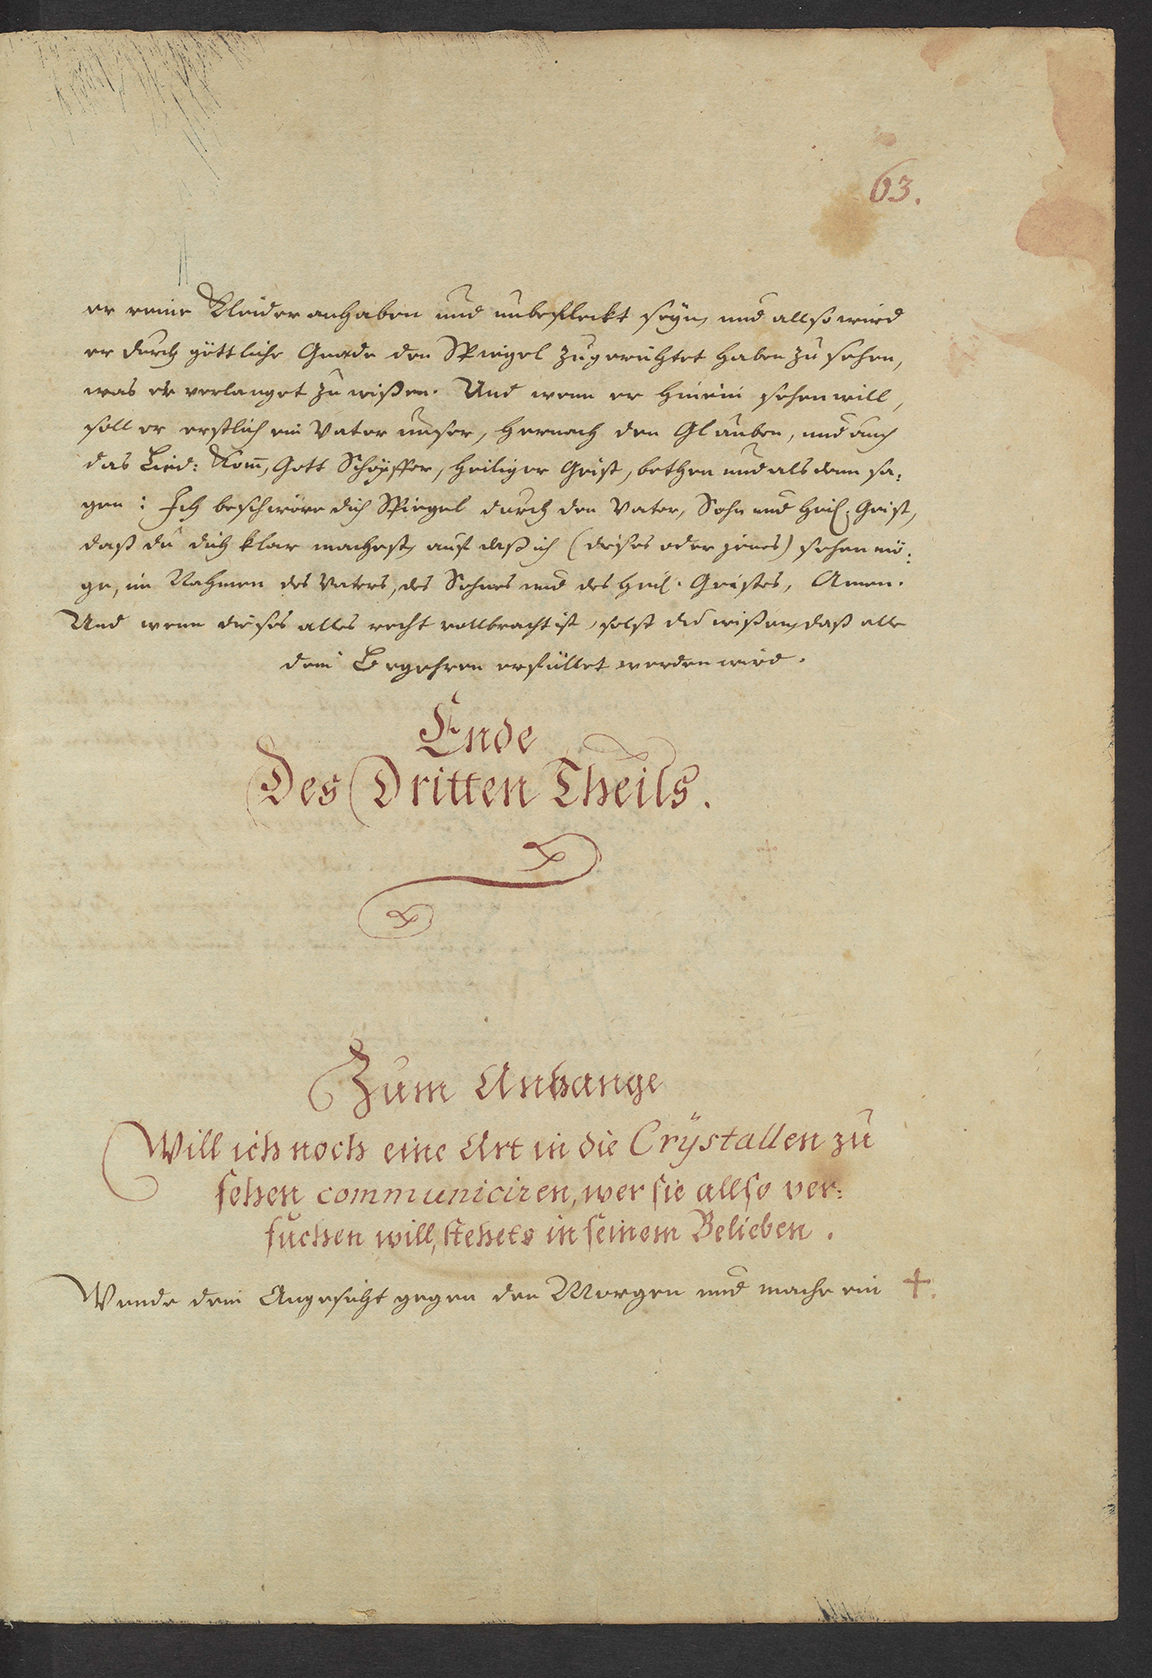 63.
er reine Kleider anhaben und unbefleckt seyn, und allso wird
er durch göttliche Gnade den Spiegel zugerichtet haben zu sehen,
was er verlanget zu wißen. Und wenn er hinein sehen will,
soll er erstlich ein Vater unser, hernach den Glauben, und auch
das Lied: Kom̄, Gott Schöpffer, heiliger Geist, bethen und als denn sa:
gen: Ich beschwöre dich Spiegel durch den Vater, Sohn und heil. Geist,
daß du dich klar machest, auf daß ich (dieses oder jenes) sehen mö:
ge, im Nahmen des Vaters, des Sohnes und des heil. Geistes, Amen.
Und wenn dieses alles recht vollbracht ist, solst du wißen, daß alle
dein Begehren erfüllet werden wird.
Ende
Des Dritten Theils.
Zum Anhange
Will ich noch eine Art in die Crÿstallen zu
sehen communiciren, wer sie allso ver:
suchen will, stehets in seinem Belieben.
Wende dein Angesicht gegen den Morgen und mache ein +.